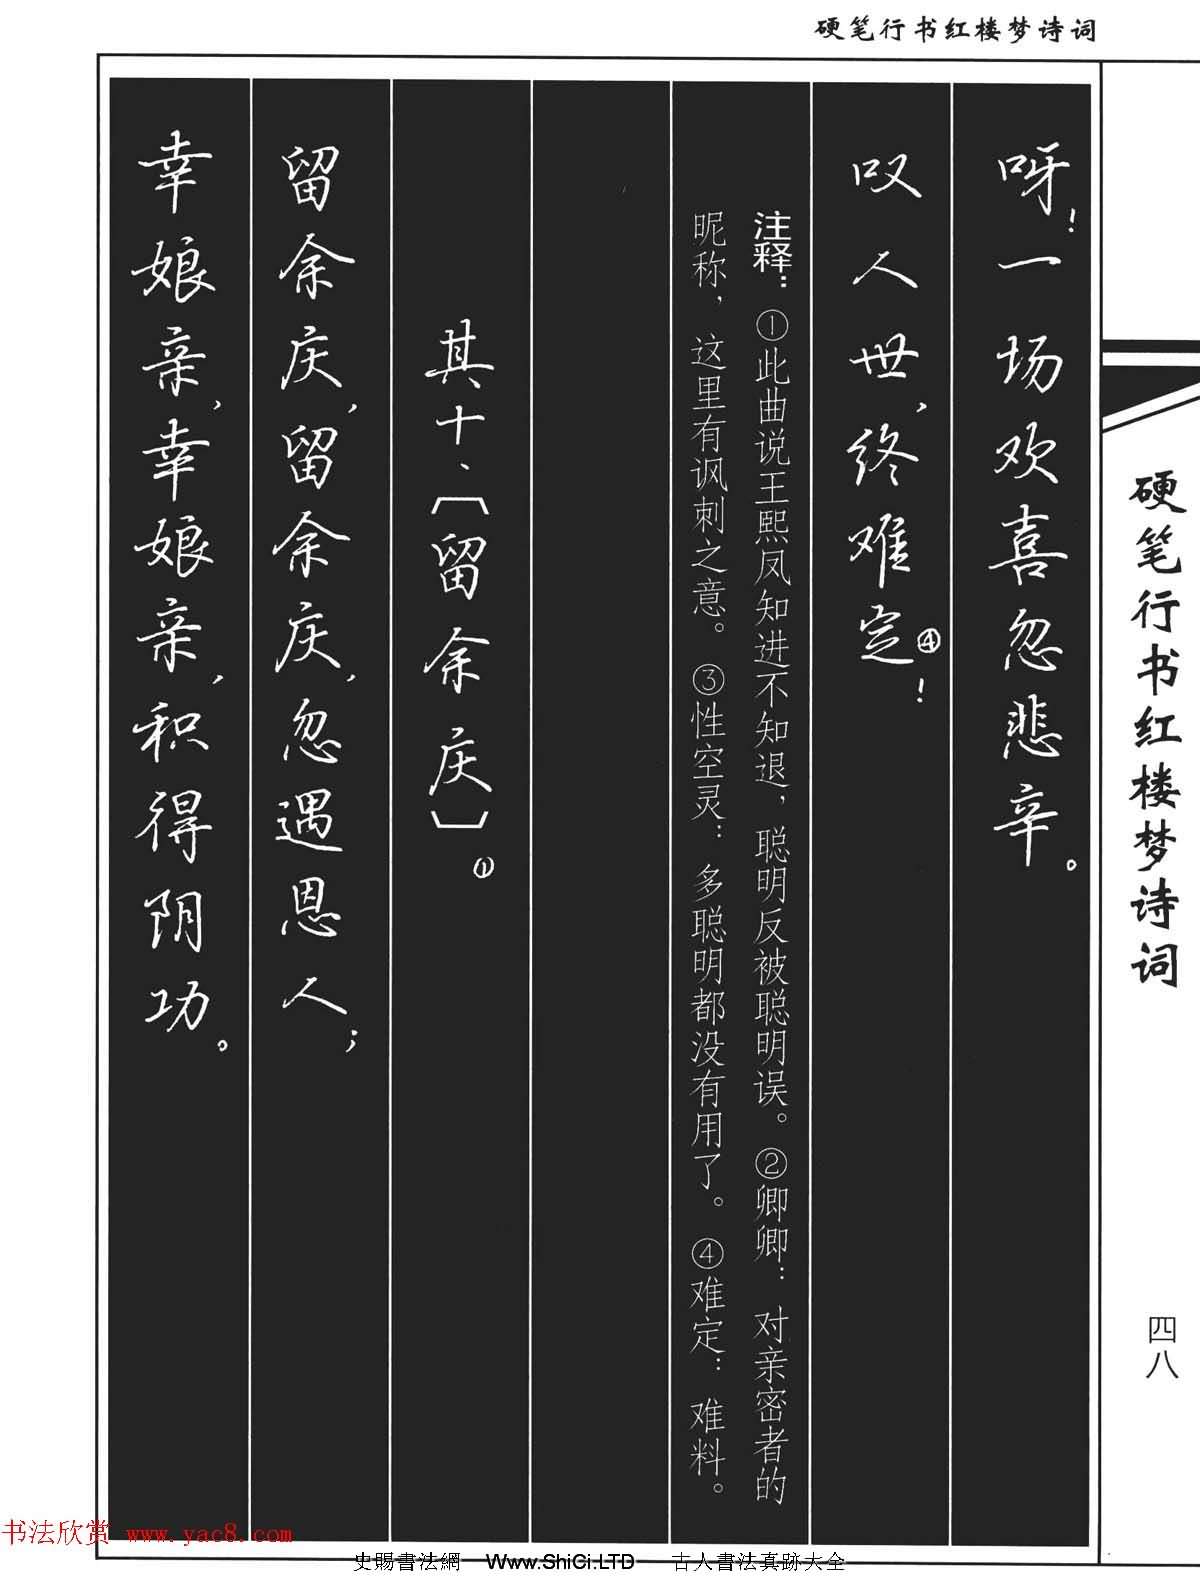 硬笔行书红楼梦诗词
呀!一场欢喜忽悲辛。
叹人世,终难定④!
注释:①此曲说王熙凤知进不知退,聪明反被聪明误。②卿卿:对亲密者的
昵称,这里有讽刺之意。③性空灵:多聪明都没有用了。④难定:难料。
其十、〔留余庆〕①
留余庆,留余庆,忽遇恩人;
幸娘亲,幸娘亲,积得阴功。
硬笔行书红楼梦诗词
四八
书法欣赏 www.yac8.com
史賜書法網 Www.ShiCi.LTD 古人書法真跡大全